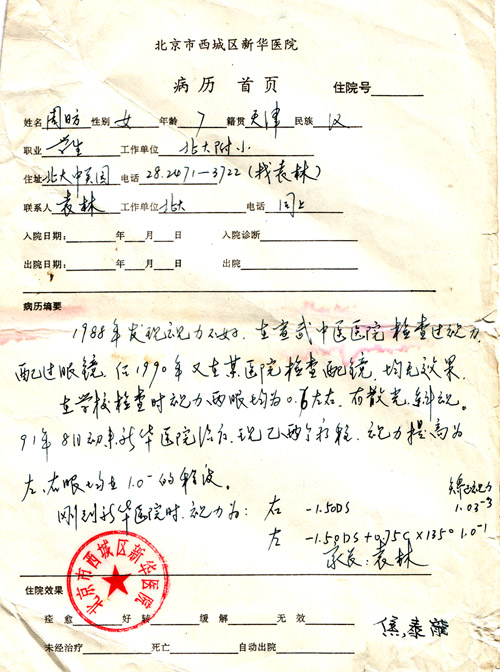 北京市西城区新华医院
病历首页 住院号
姓名 周昉 性别 女 年龄 7 籍贯 天津 民族 汉
职业 学生 工作单位 北大附小
住址 北大中关园 电话 28.2471—3722(找袁林)
联系人 袁林 工作单位 北大 电话 同上
入院日期: 年 月 日 入院诊断
出院日期: 年 月 日 出院
病历摘要
1988年发现视力不好,在宣武中医医院检查过视力,
配过眼镜,但1990年又在某医院检查配镜,均无效果.
在学校检查时视力两眼均为0.6左右,有散光、斜视。
91年8月初来新华医院治疗,现已两个疗程,视力提高为
左、右眼均在1.0⁻的程度。
刚到新华医院时,视力为: 右 -1.50DS 1.03⁻³
左 -1.50DS+0.75C×135° 1.0⁻¹
家长:袁林
北京市西城区新华医院
住院效果
痊愈 好转 缓解 无效
未经治疗 死亡 自动出院